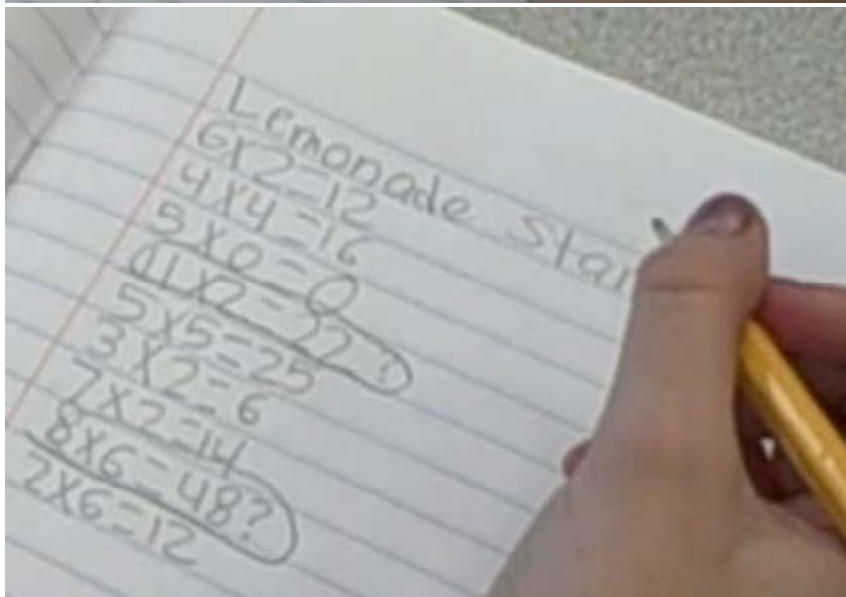 Lemonade Star
6x2=12
4x4=16
5x0=0
11x2=22?
5x5=25
3x2=6
7x2=14
8x6=48?
2x6=12